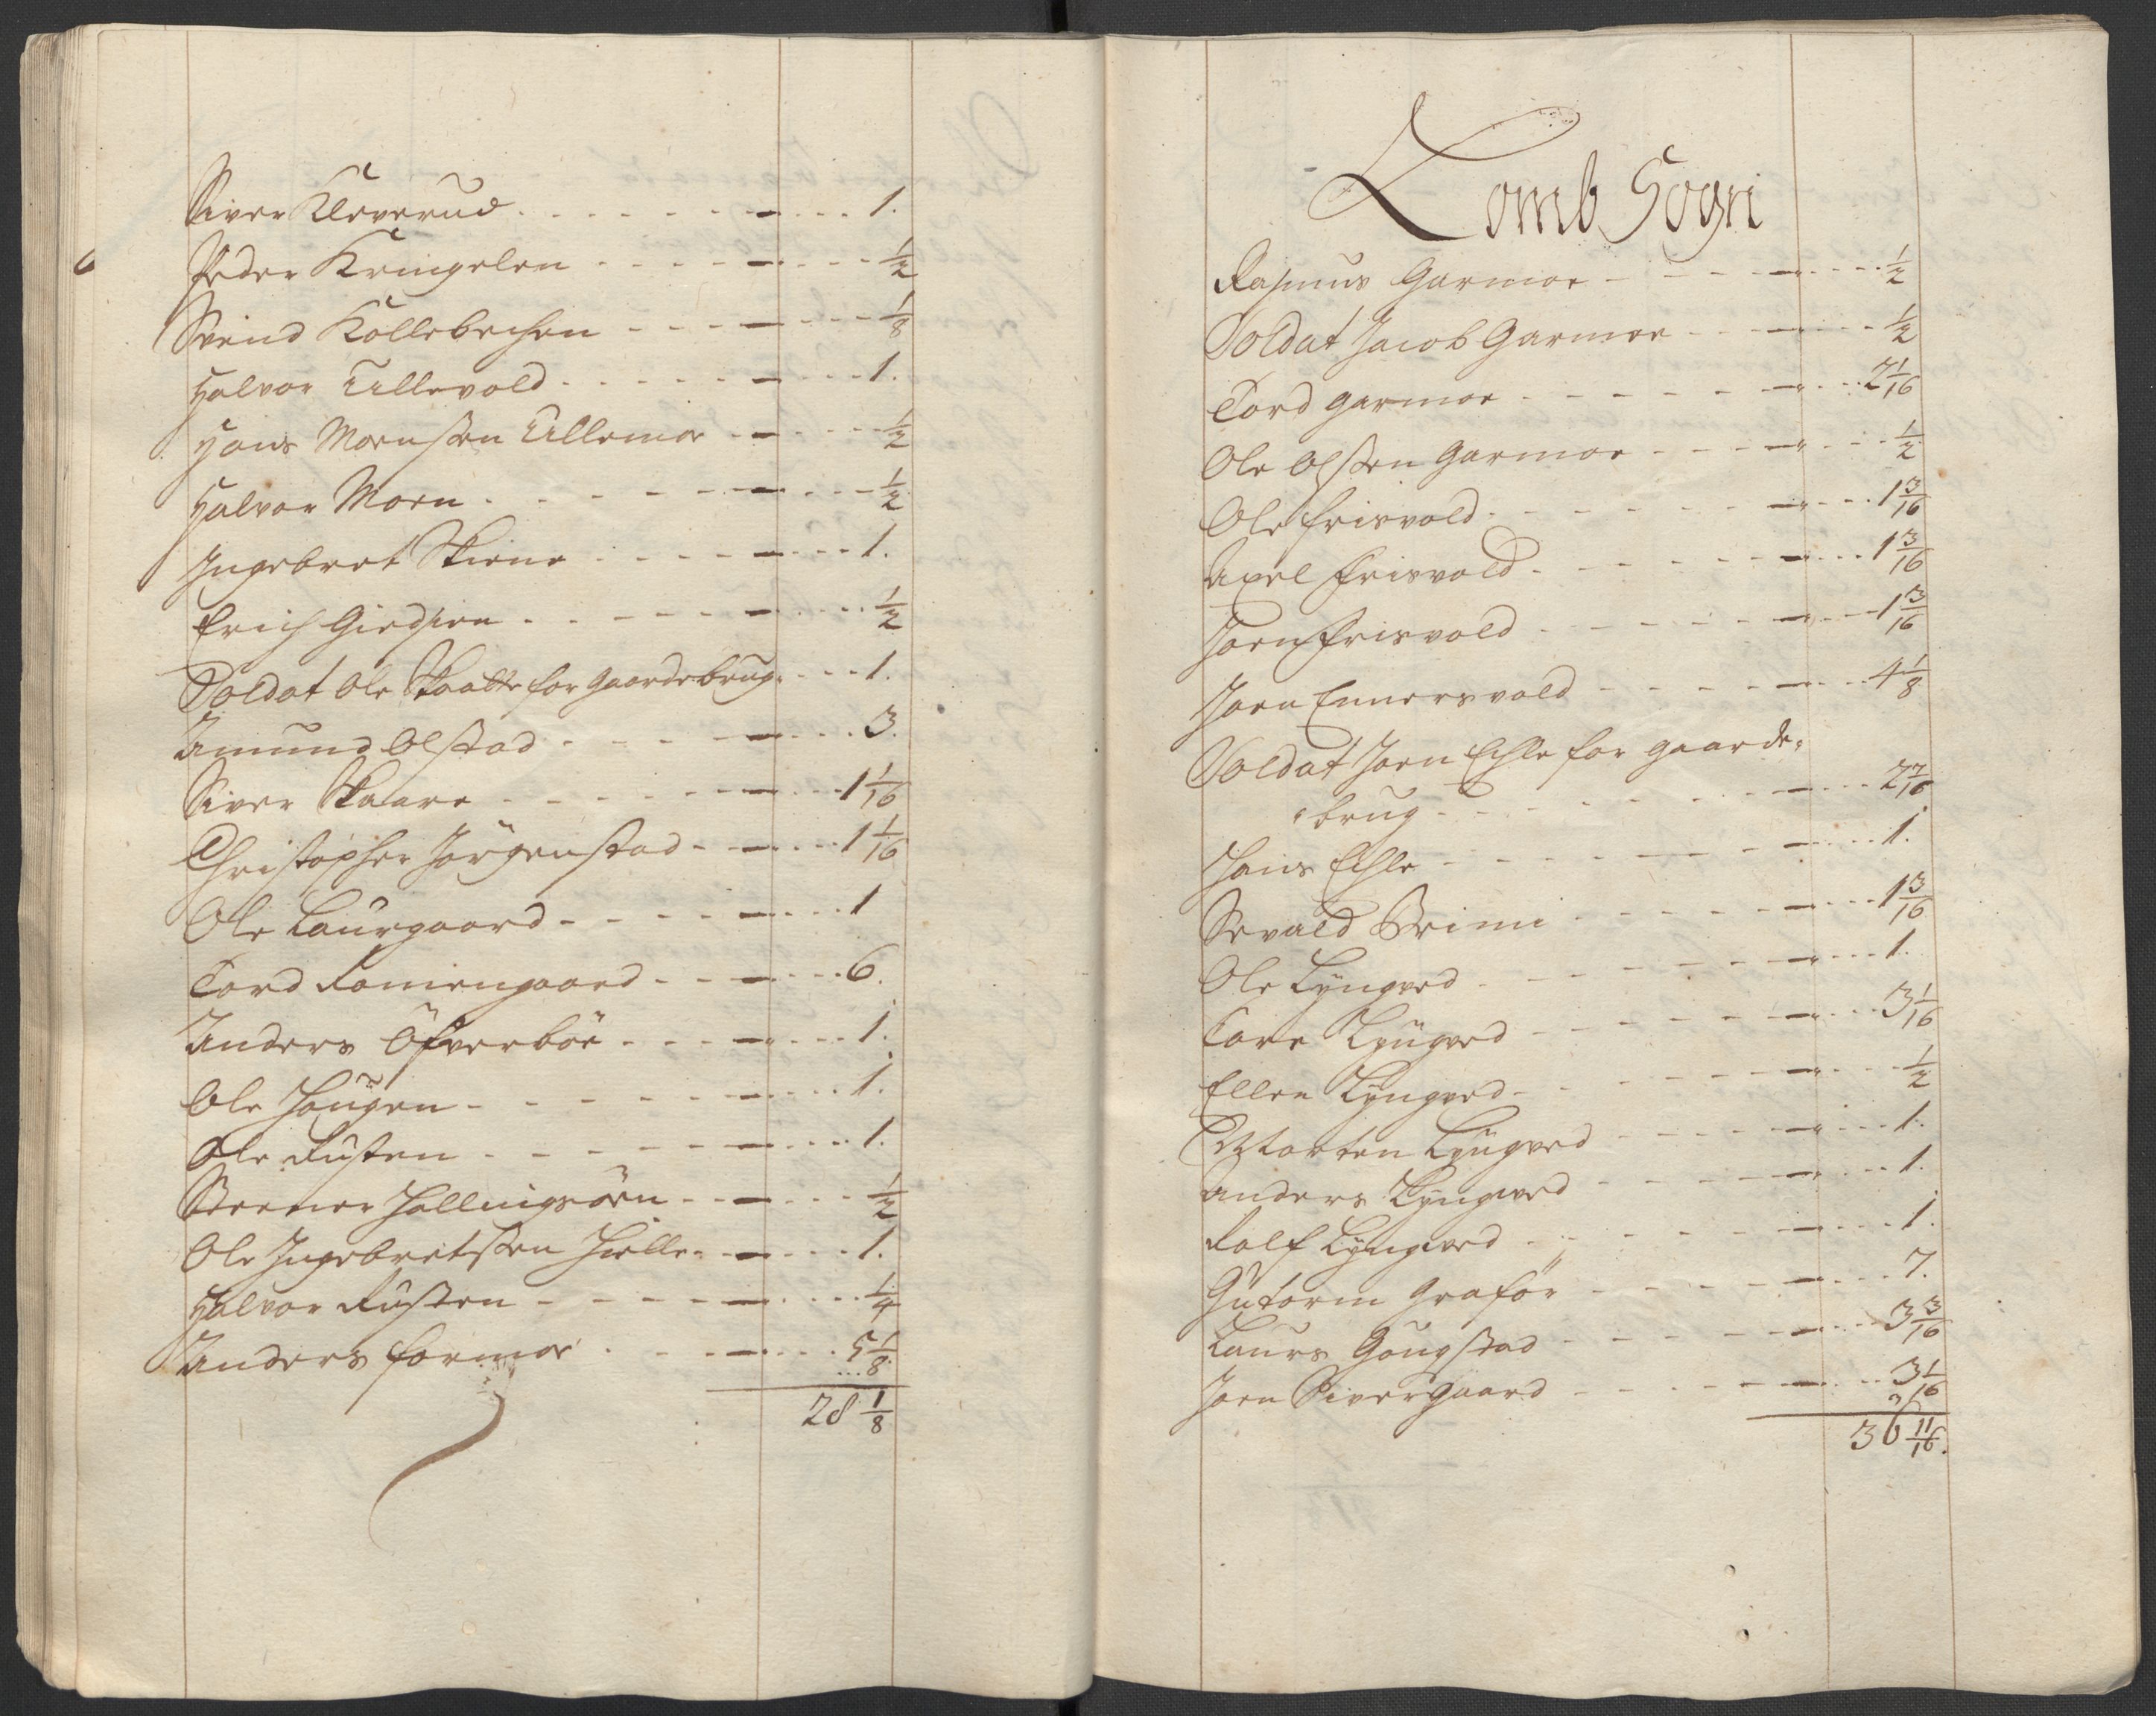 Siver Kleverud - - - 1.
Peder Kringelen - - - 1/2
Svend Kollebechen - - - 1/8
Halvor Ullevold - - - 1.
Hans Moenssen Ullemoe - - - 1/2
Halvor Moen - - - 1/2
Ingebret Skiene - - - 1.
Erich - - - 1/2
Soldat Ole Skaatte for Gaardebrug - - - 1.
Amund Olstad - - - 3.
Siver Skaare - - - 1 1/16
Christopher Jörgenstad - - - 1 1/16
Ole Laurgaard - - - 1
Tord Romengaard - - - 6.
Anders Öfverböe - - - 1.
Ole Haugen - - - 1.
Ole Rusten - - - 1.
Steener Hellingsöen - - - 1/2
Ole Ingebretssen Hielle - - - 1.
Halvor Rusten - - - 1/4
Anders Formoe - - - 5 1/8
28 1/8
Lomb Sogn
Rasmus Garmoe - - - 1/2
Soldat Jacob Garmoe - - - 1/2
Tord Garmoe - - - 2 1/16
Ole Olssen Garmoe - - - 1/2
Ole Frisvold - - - 1 3/16
Axel Frisvold - - - 1 3/16
Joen Frisvold - - - 1 3/16
Joen Ennersvold - - - 4 1/8
Soldat Joen Echle for Gaarde-
brug - - - 2 7/16
Hans Echle - - - 1.
Sevald Brimi - - - 1 3/16
Ole Lyngved - - - 1.
Tore Lyngved - - - 3 1/16
Ellen Lyngved - - - 1/2
Morten Lyngved - - - 1.
Anders Lyngved - - - 1.
Rolf Lyngved - - - 1.
Gutorm Graför - - - 7.
Laurs Gougstad - - - 3 3/16
Joen Sivergaard - - - 3 1/16
36 11/16.